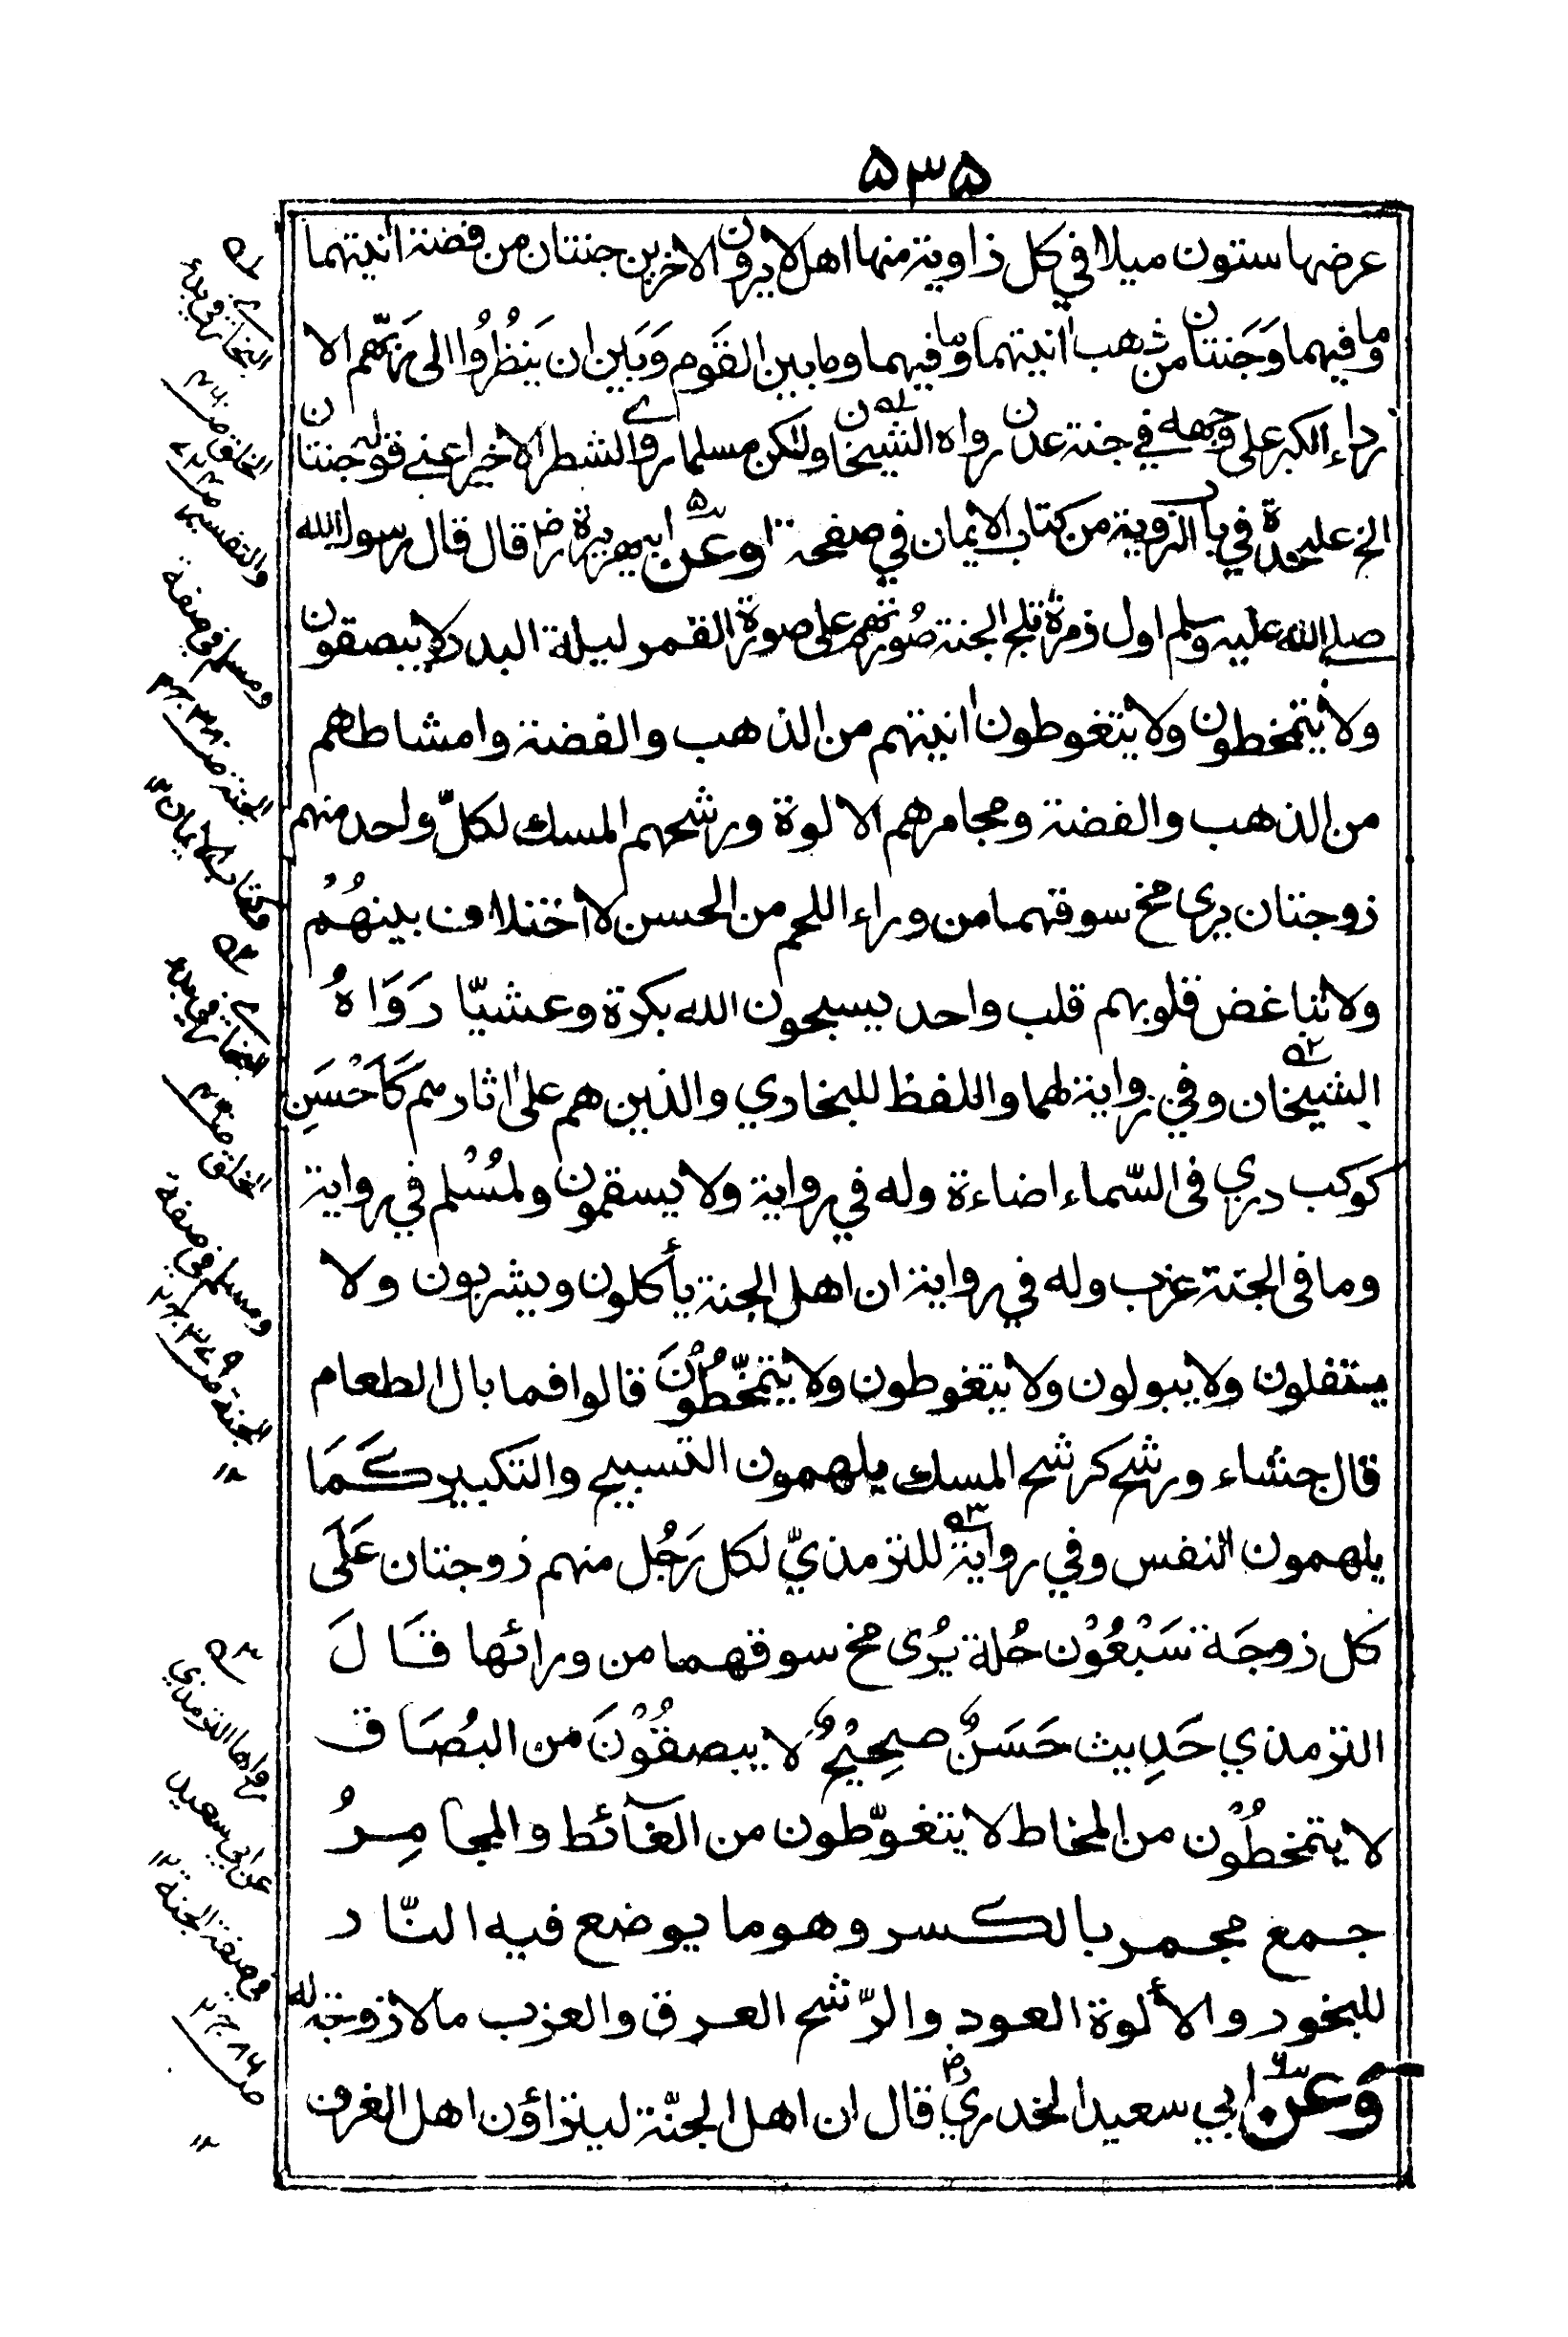 ۵۳۵
عرضها ستون ميلا في كل زاوية منها اهل لا يرون الاخرين جنتان من فضة انيتهما
وما فيهما وَجَنتان من ذهب انيتهما وما فيهما وما بين القَوم وَبَين ان يَنظُرُوا الى رَبّهم الا
رداء الكبر على وجهه في جنة عدن رواه الشيخان ولٰكن مسلما روى الشطر الاخير اعنے قوله جنتان
الخ عليحدة في باب الروية من كتاب الايمان في صفحة وعن ابي هريرة رض قال قال رسول الله
صلے الله عليه وسلم اول زمرة تلج الجنة صُورتهم على صورة القمر ليلة البدر لا يبصقون
ولا يتمخطون ولا يتغوطون انيتهم من الذهب والفضة وامشاطهم
من الذهب والفضة ومجامرهم الالوة ورشحهم المسك لكلّ واحد منهم
زوجتان يرى مخ سوقهما من وراء اللحم من الحسن لا اختلاف بينهُمْ
ولا تباغض قلوبهم قلب واحد يسبحون الله بكرة وعشيّا رَوَاهُ
الشيخان وفي رواية لهما واللفظ للبخاري والذين هم علىٰ اثارهم كَاَحْسَنِ
كوكب دري فى السّماء اضاءة وله في رواية ولا يسقمون ولمُسْلم في رواية
وما فى الجنة عزب وله في رواية ان اهل الجنة يأكلون ويشربون ولا
يتفلون ولا يبولون ولا يتغوطون ولا يتمخّطُوْنَ قالوا فما بال الطعام
قال جشاء ورشح كرشح المسك يلهمون التسبيح والتكبير كَمَا
يلهمون النفس وفي رواية للترمذيّ لكل رَجُل منهم زوجتان عَلَى
كل زوجَة سَبْعُوْن حُلة يُرٰى مخ سوقهما من ورائها قَالَ
الترمذي حَدِيث حَسَنٌ صحِيْحٌ لا يبصقُوْنَ من البُصَاق
لا يتمخطُوْن من المخاط لا يتغوّطون من الغَآئط والمجامِرُ
جمع مجمر بالكسر وهو ما يوضع فيه النّار
للبخور والأُلوة العود والرّشح العرق والعزب مالا زوجة له
وَعَن ابي سعيد الخدريؓ قال ان اهل الجنّة ليتراؤن اهل الغرف
ومسلم في صفة
ومسلم في صفة
رواها الترمذي
عن ابي سعيد
في صفة الجنة